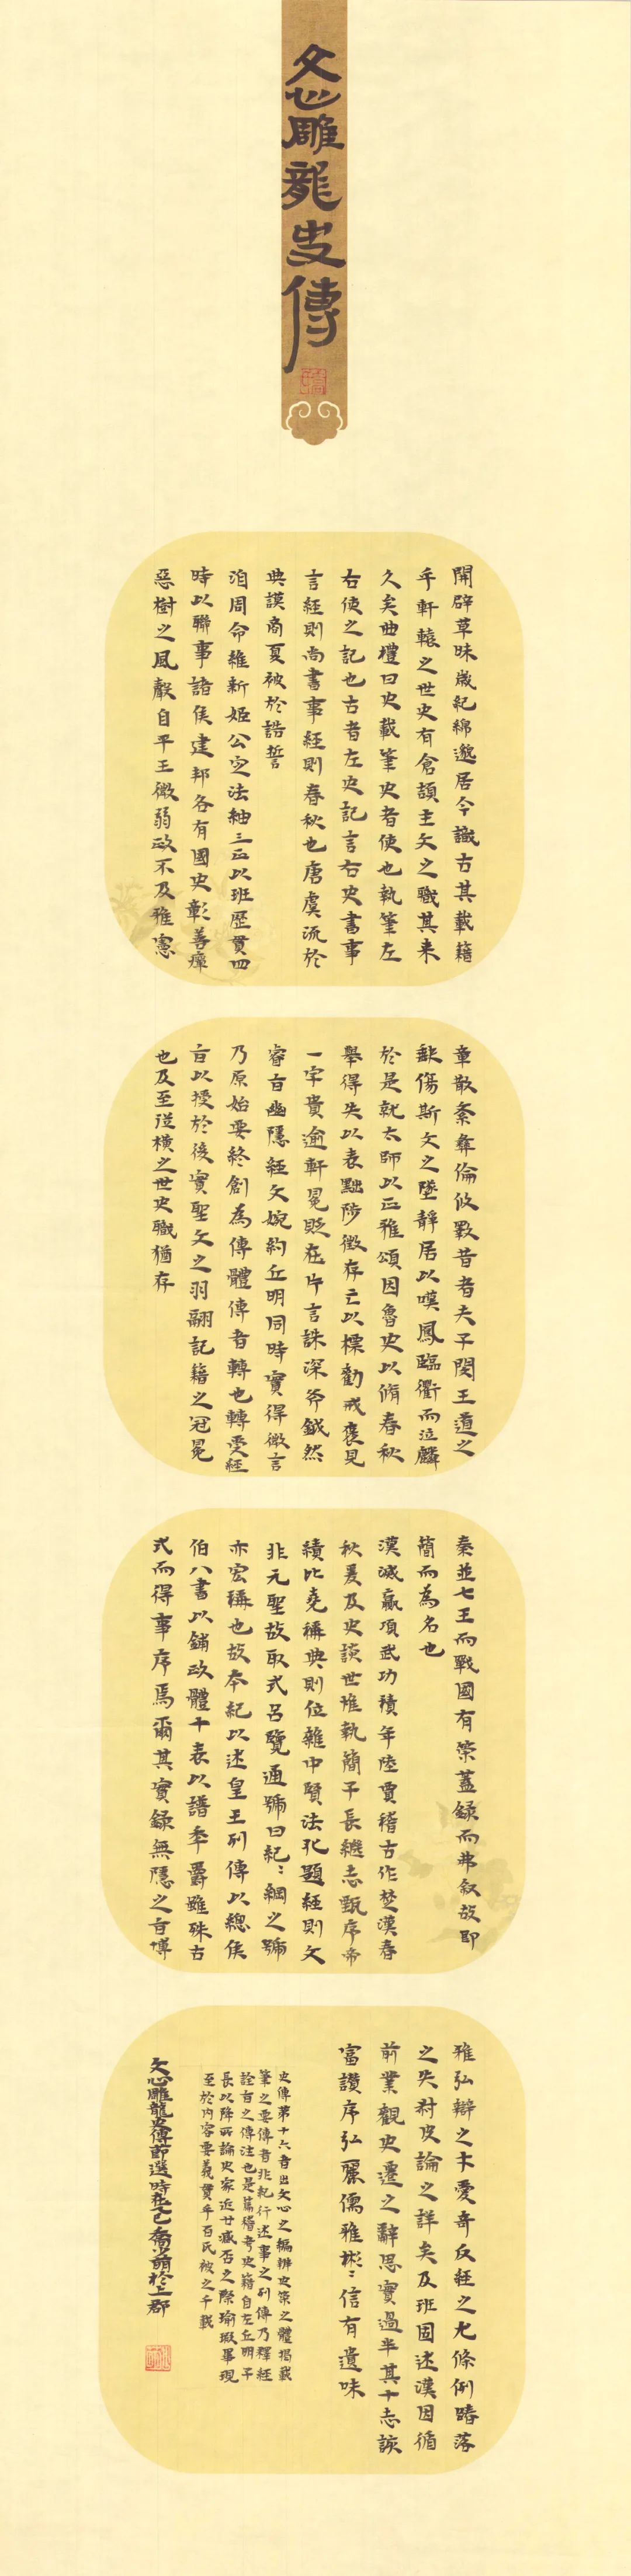 文心雕龍史傳
開辟草昧歲紀綿邈居今識古其載籍
乎軒轅之世史有倉頡主文之職其来
久矣曲禮曰史載筆史者使也執筆左
右使之記也古者左史記言右史書事
言經則尚書事經則春秋也唐虞流於
典謨商夏被於誥誓
洎周命維新姬公定法紬三正以班歷貫四
時以聯事諸侯建邦各有國史彰善癉
惡樹之風聲自平王微弱政不及雅憲
章散紊彝倫攸斁昔者夫子閔王道之
缺傷斯文之墜靜居以嘆鳳臨衢而泣麟
於是就太師以正雅頌因魯史以脩春秋
舉得失以表黜陟徵存亡以標勸戒褒見
一字貴逾軒冕貶在片言誅深斧鉞然
睿旨幽隱經文婉約丘明同時實得微言
乃原始要終創為傳體傳者轉也轉受經
旨以授於後實聖文之羽翮記籍之冠冕
也及至從橫之世史職猶存
秦並七王而戰國有策蓋録而弗叙故即
簡而為名也
漢滅嬴項武功積年陸賈稽古作楚漢春
秋爰及史談世惟執簡子長繼志甄序帝
績比堯稱典則位雜中賢法孔題經則文
非元聖故取式呂覽通號曰紀〻綱之號
亦宏稱也故本紀以述皇王列傳以總侯
伯八書以鋪政體十表以譜年爵雖殊古
式而得事序焉爾其實録無隱之旨博
雅弘辯之才愛奇反經之尤條例踳落
之失叔皮論之詳矣及班固述漢因循
前業觀史遷之辭思實過半其十志該
富讚序弘麗儒雅彬〻信有遺味
史傳第十六者出文心之編辨史策之體揭載
筆之要傳者非紀行述事之列傳乃釋經
詮旨之傳注也是篇稽考史籍自左丘明子
長以降所論史家近廿臧否之際瑜瑕畢現
至於内容要義貫乎百氏被之千載
文心雕龍史傳節選時在乙巳喬萌於上郡